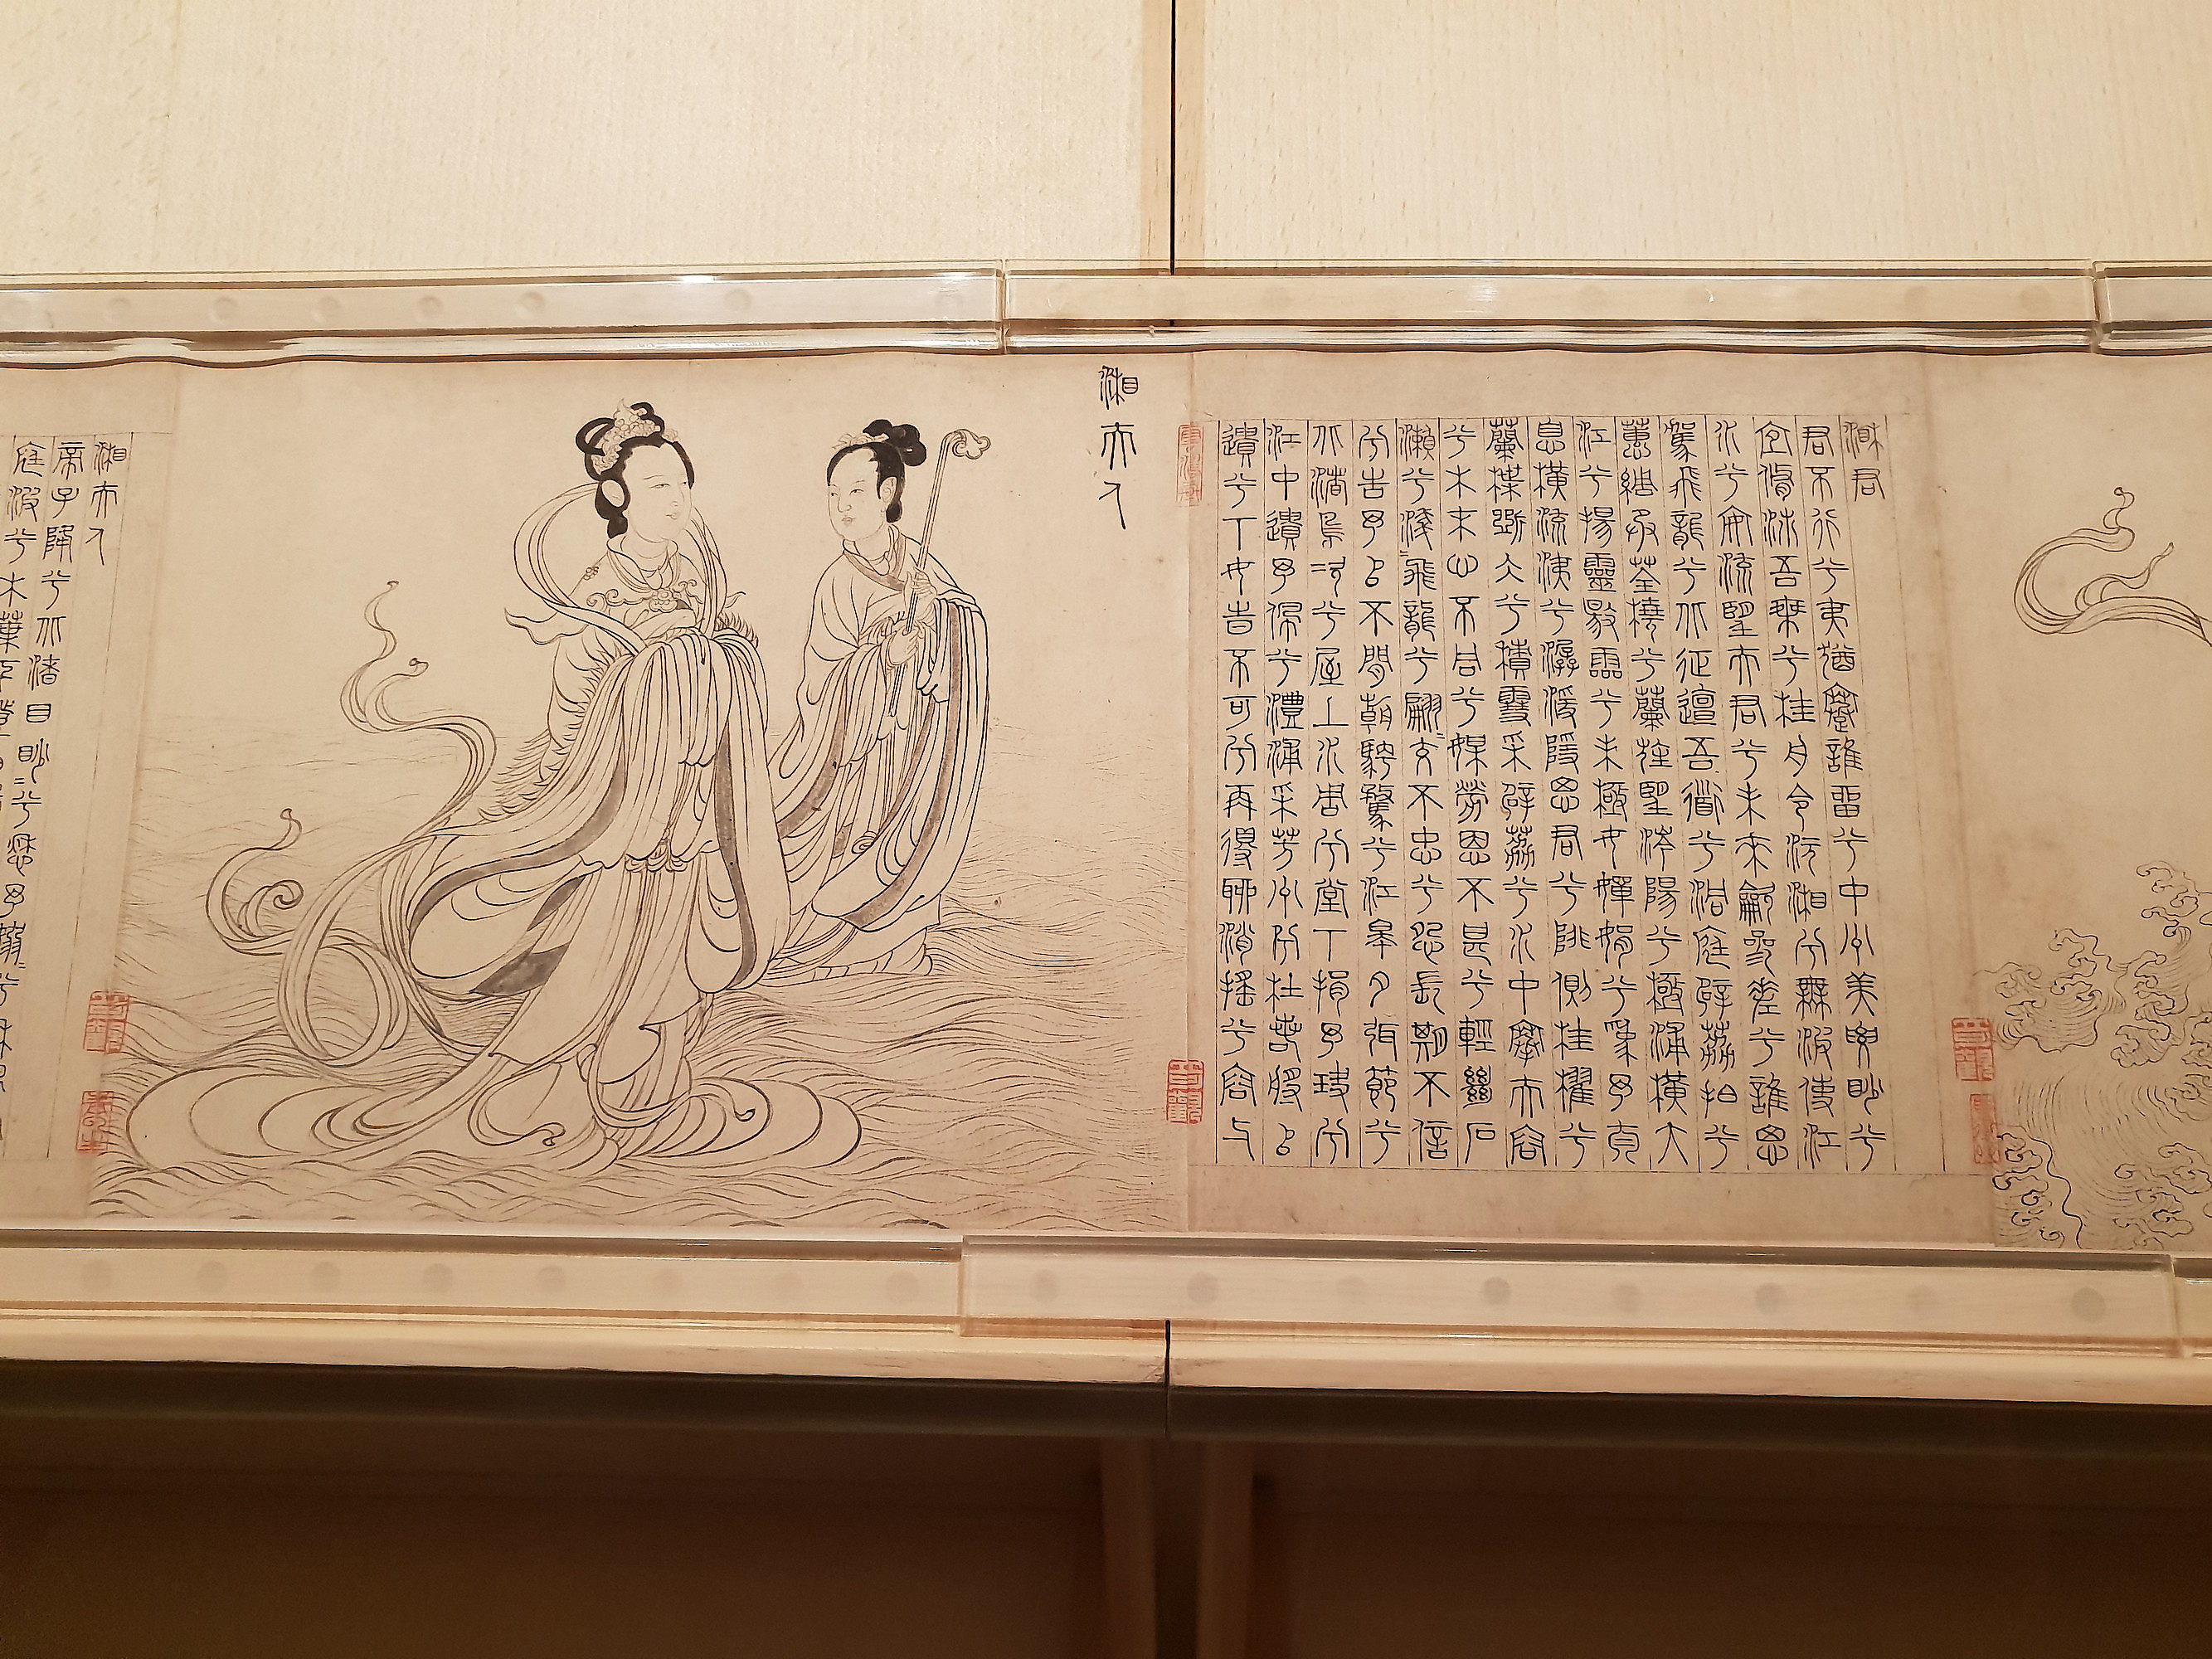 湘君
君不行兮夷猶蹇誰留兮中州美要眇兮
宜脩沛吾乘兮桂舟令沅湘兮無波使江
水兮安流望夫君兮未來龡參差兮誰思
駕飛龍兮北征邅吾道兮洞庭薜荔拍兮
蕙綢承荃橈兮蘭旌望涔陽兮極浦橫大
江兮揚靈敭靈兮未極女嬋媛兮為余太
息橫流涕兮潺湲隱思君兮陫側桂櫂兮
蘭枻斲冰兮積雪采薜荔兮水中搴芙蓉
兮木末心不同兮媒勞恩不甚兮輕絕石
瀨兮淺淺飛龍兮翩翩交不忠兮怨長期不信
兮告予以不閒朝騁騖兮江皋夕弭節兮
北渚鳥次兮屋上水周兮堂下捐予玦兮
江中遺予佩兮澧浦采芳州兮杜若將以
遺兮下女時不可兮再得聊逍遙兮容與
湘夫人
湘夫人
帝子降兮北渚目眇眇兮愁予嫋嫋兮秋風
庭波兮木葉下登